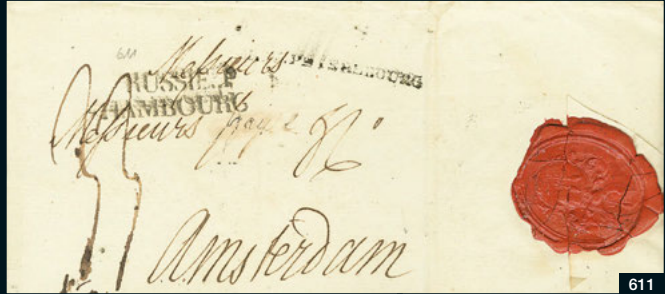 611
Messieurs
PETERSBOURG
RUSSIE P
HAMBOURG
Messieurs
Amsterdam
611